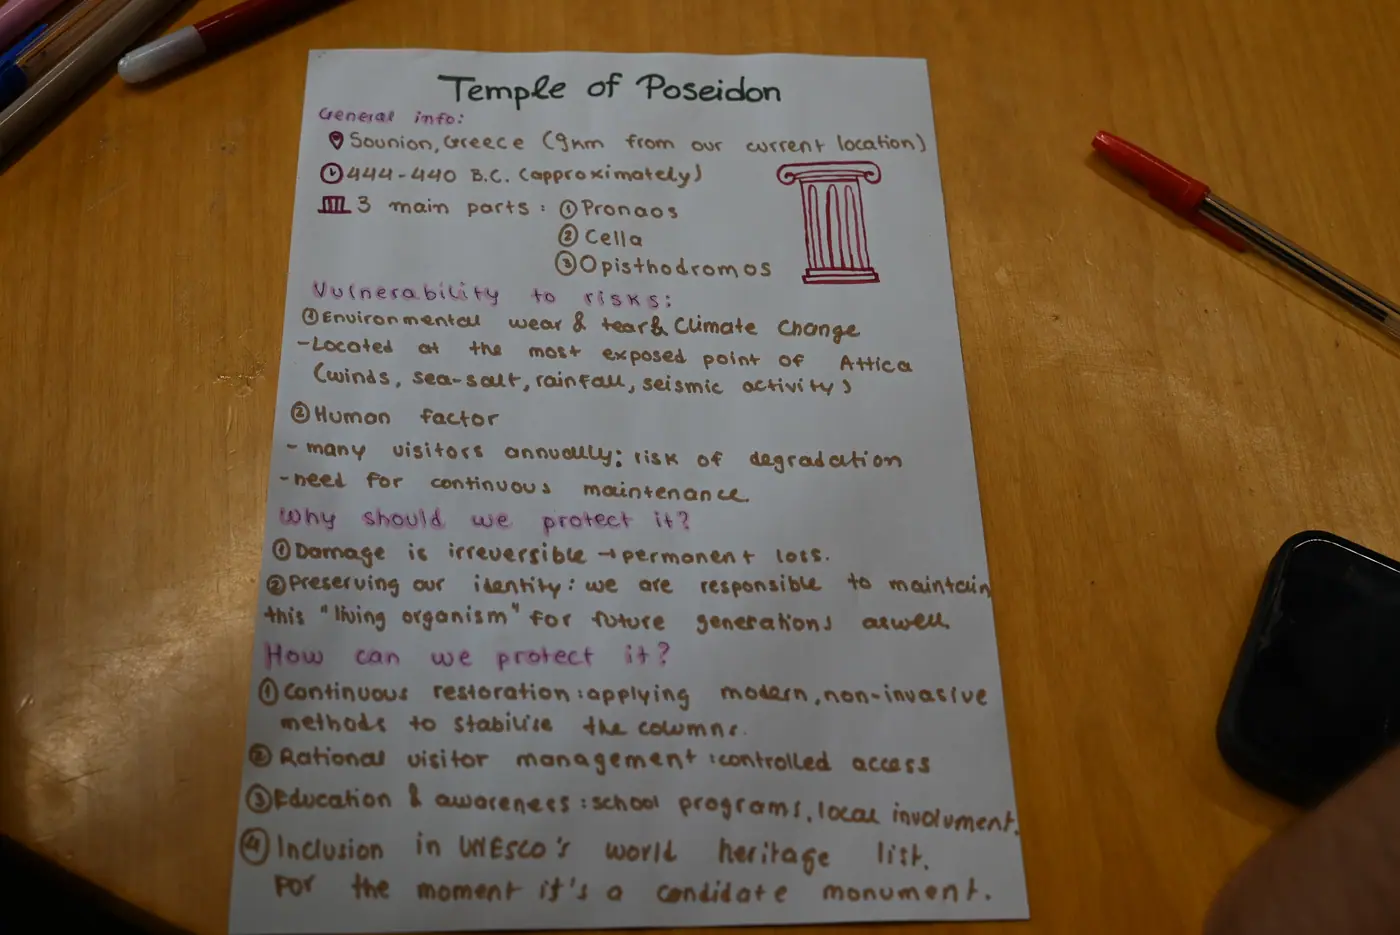 Temple of Poseidon
General info:
Sounion, Greece (9km from our current location)
444-440 B.C. (approximately)
3 main parts: ① Pronaos
② Cella
③ Opisthodromos
Vulnerability to risks:
① Environmental wear & tear & Climate Change
-Located at the most exposed point of Attica
(winds, sea-salt, rainfall, seismic activity)
② Human factor
- many visitors annually: risk of degradation
-need for continuous maintenance.
Why should we protect it?
① Damage is irreversible → permanent loss.
② Preserving our identity: we are responsible to maintain
this "living organism" for future generations aswell.
How can we protect it?
① Continuous restoration: applying modern, non-invasive
methods to stabilise the columns.
② Rational visitor management: controlled access
③ Education & awareness: school programs, local involvment.
④ Inclusion in UNESCO's world heritage list.
For the moment it's a candidate monument.